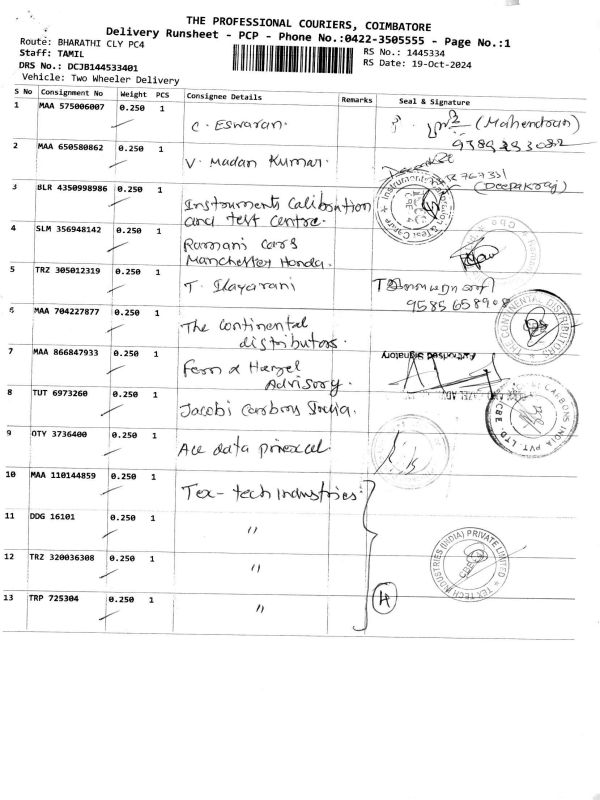 THE PROFESSIONAL COURIERS, COIMBATORE
Delivery Runsheet - PCP - Phone No.:0422-3505555 - Page No.:1
Route: BHARATHI CLY PC4
RS No.: 1445334
Staff: TAMIL
RS Date: 19-Oct-2024
DRS No.: DCJB144533401
Vehicle: Two Wheeler Delivery
S No Consignment No Weight PCS Consignee Details Remarks Seal & Signature
1 MAA 575006007 0.250 1
C. Eswaran. (Mahendran)
2 MAA 650580862 0.250 1
V. Madan Kumar.
(Deepakraj)
3 BLR 4350998986 0.250 1
Instruments Calibration
and test Centre.
4 SLM 356948142 0.250 1
Ramani cars
Manchester Honda.
5 TRZ 305012319 0.250 1
T. Ilayarani
9585658908
6 MAA 704227877 0.250 1
The continental
distributors.
THE CONTINENTAL DISTRIBUTORS
7 MAA 866847933 0.250 1
Authorised Signatory
Fern & Hazel
Advisory.
8 TUT 6973260 0.250 1
Jacobi Carbons India.
CARBONS INDIA PVT. LTD. CBE
9 OTY 3736400 0.250 1
Ace data pinexcel
10 MAA 110144859 0.250 1
Tex-tech industries
11 DDG 16101 0.250 1 "
12 TRZ 320036308 0.250 1 "
TEX TECH INDUSTRIES (INDIA) PRIVATE LIMITED
CBE
13 TRP 725304 0.250 1 "
4